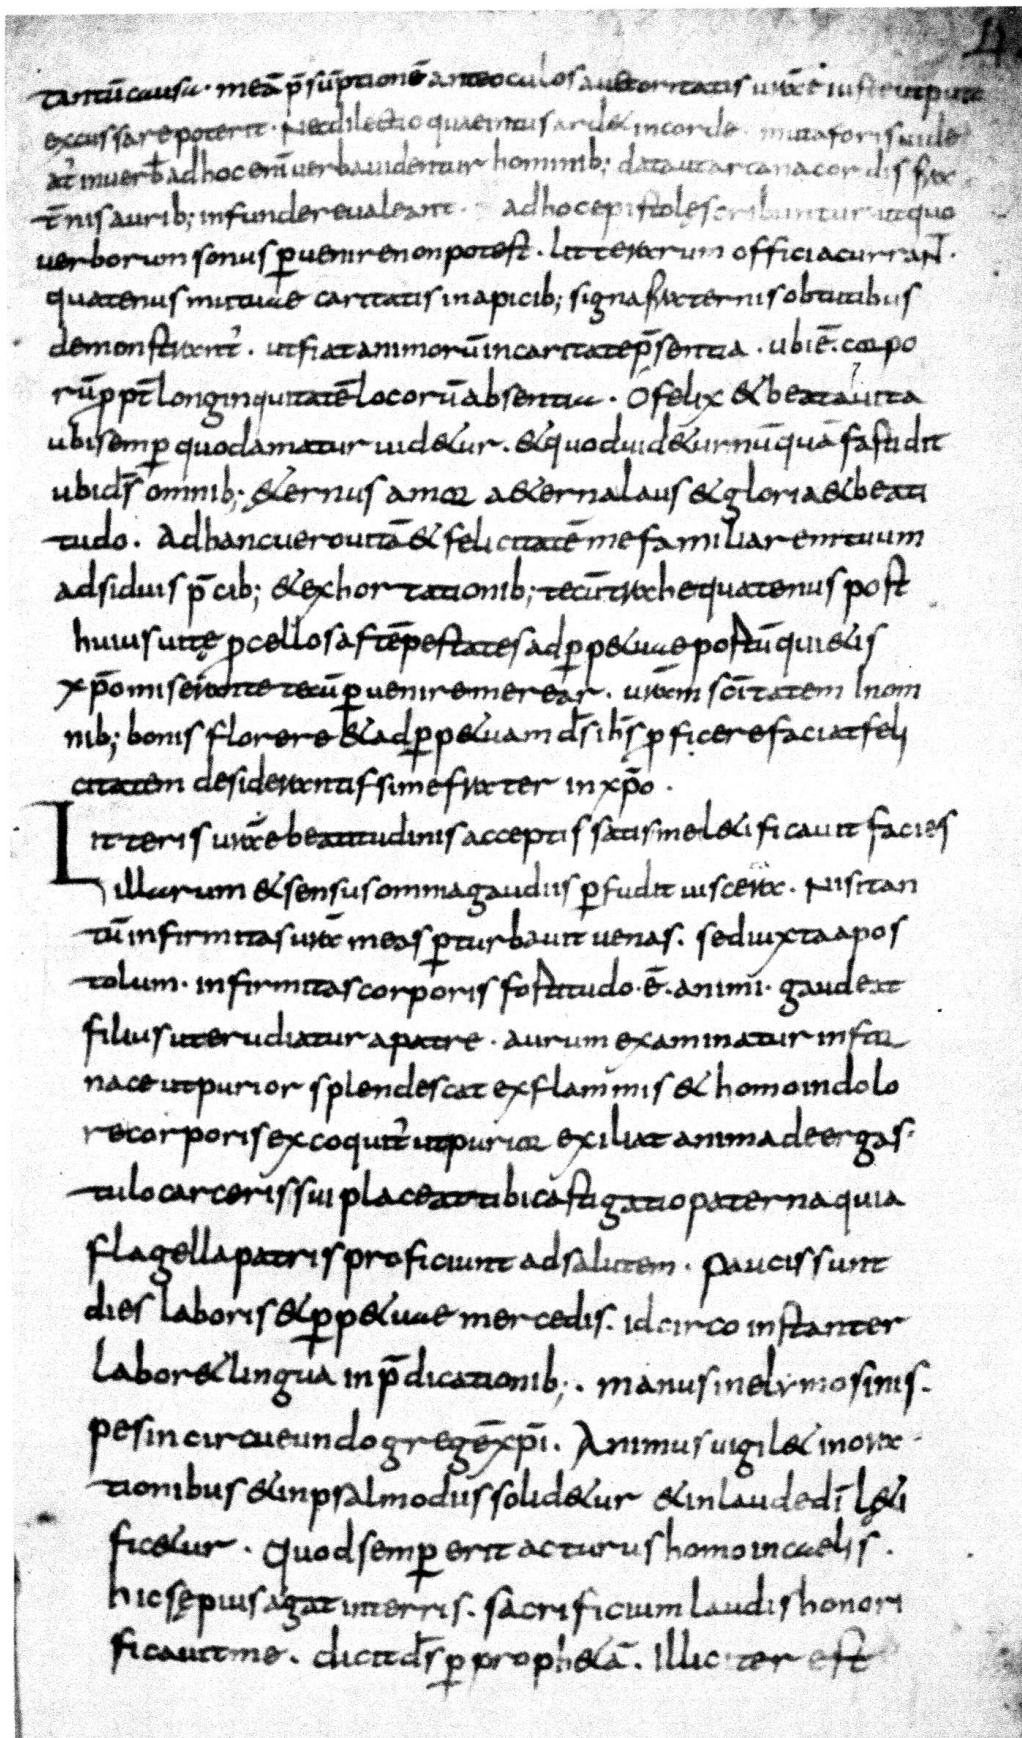 tantū causa. meā p̄sūptionē ante oculos auctoritatis urae iuste ut puto
excussare poterit. Nec dilectio quae intus ardet in corde. muta foris uide
at̉ in uerb̄ ad hoc enī uerba uidentur hominib; data ut arcana cordis frat
t̄nis aurib; infundere ualeant. ad hoc epistolę scribuntur ut quo
uerborum sonus ꝑuenire non potest. litterarum officia currant.
quatenus mutuae caritatis in apicib; signa fraternis obtutibus
demonstrant̉. ut fiat animorū in caritate p̄sentia. ubi ē. corpo
rū ꝓpt̄ longinquitatē locorū absentia. O felix & beata uita
ubi semꝑ quod amatur uid&ur. & quod uid&ur nūquā fastidit
ubi d̄s omnib; &ernus amor a&erna laus & gloria & beati
tudo. Ad hanc uero uitā & felicitatē me familiarem tuum
adsiduis p̄cib; & exhortationib; tecū trahe quatenus post
huius uitę ꝓcellosas tēpestates ad ꝑp&uae portū qui&is
xp̄o miserante tecū ꝑuenire merear. urām sc̄itatem In om
nib; bonis florere & ad ꝑp&uam d̄s ih̄s ꝓficere faciat feli
citatem desiderantissime frater in xp̄o.
Litteris urae beatitudinis acceptis satis me l&ificauit facies
illarum & sensus omnia gaudiis ꝑfudit uiscera. Nisi tan
tū infirmitas ura meas ꝑturbauit uenas. sed iuxta apos
tolum. infirmitas corporis fortitudo. ē. animi. gaudeat
filius ut erudiatur a patre. aurum examinatur in for
nace ut purior splendescat ex flammis & homo in dolo
re corporis excoquit̉ ut purior exiliat anima de ergas
tulo carceris sui placeat tibi castigatio paterna quia
flagella patris proficiunt ad salutem. Paucis sunt
dies laboris & ꝑp&uae mercedis. idcirco instanter
labor& lingua in p̄dicationib;. manus in elymosinis.
pes in circueundo gregē xp̄i. Animus uigil& in ora
tionibus & in psalmodiis solid&ur & in laude dī l&i
fic&ur. Quod semꝑ erit acturus homo in caelis.
hic sępius agat in terris. sacrificium laudis honori
ficauit me. dicit d̄s ꝑ proph&ā. Illic iter est